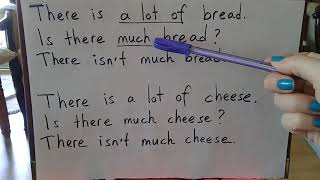 There is a lot of bread.
Is there much bread?
There isn't much bread.
There is a lot of cheese.
Is there much cheese?
There isn't much cheese.